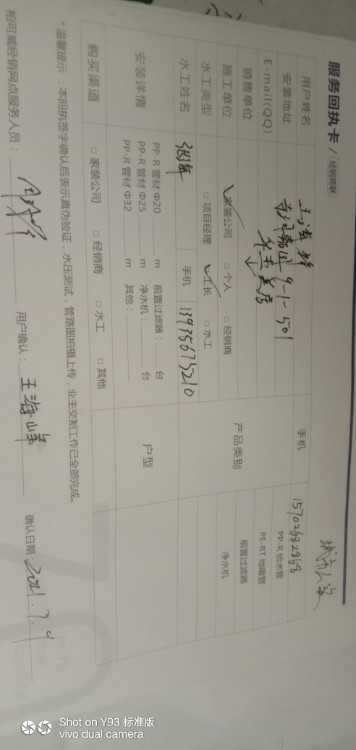 服务回执卡 / 经销商联
用户姓名 王海峰 手机 15702682968
安装地址 9-1-501
E-mail(QQ)
销售单位
施工单位 家装公司 □ 个人 □ 经销商 产品类别 PP-R 给水管 PE-RT 地暖管 前置过滤器 净水机
水工类型 □ 项目经理 工长 □ 水工
水工姓名 手机
安装详情 PP-R 管材 Φ20 m 前置过滤器: 台 户型
PP-R 管材 Φ25 m 净水机: 台
PP-R 管材 Φ32 m 其他:
购买渠道 □ 家装公司 □ 经销商 □ 水工 □ 其他
* 温馨提示:本回执签字确认后表示真伪验证,水压测试,管路图拍摄上传,业主交割工作已全部完成。
柏可威经销网点服务人员: 用户确认: 王海峰 确认日期: 2021.7.4
Shot on Y93 标准版
vivo dual camera